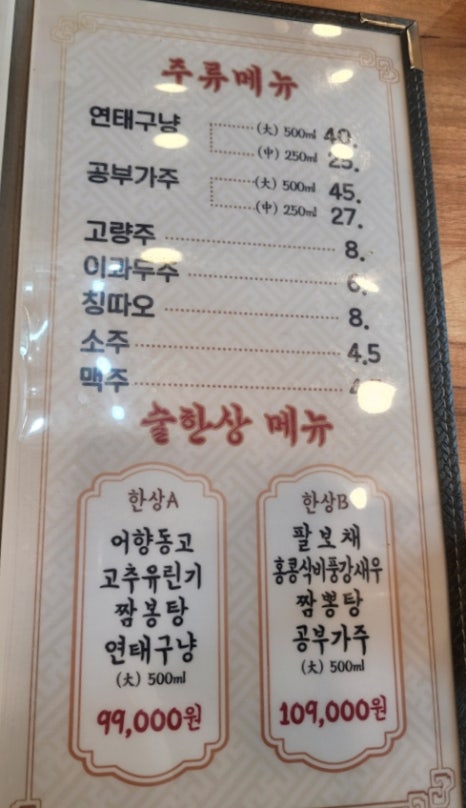 주류메뉴
연태구냥 (大) 500ml 40.
(中) 250ml 25.
공부가주 (大) 500ml 45.
(中) 250ml 27.
고량주 8.
이과두주 6.
칭따오 8.
소주 4.5
맥주
술한상 메뉴
한상A
어향동고
고추유린기
짬봉탕
연태구냥
(大) 500ml
99,000원
한상B
팔보채
홍콩식비풍강새우
짬뽕탕
공부가주
(大) 500ml
109,000원